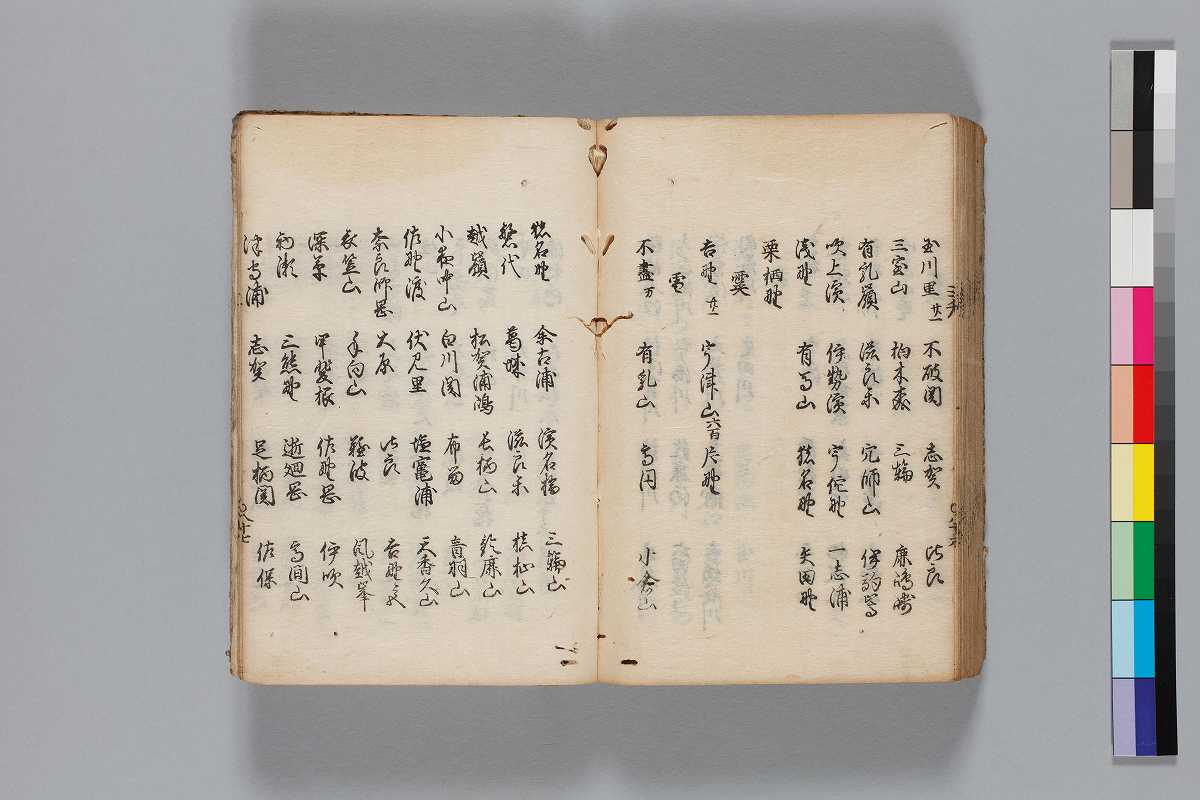 玉川里 廿一 不破関 志賀 比良
三室山 柏木森 三輪
有乳嶺 滋良木 穴師山 伊駒嵩
吹上濱 伊勢濱 宇佗野 一志浦
浅野 有馬山 猪名野 矢田野
栗栖野
霙
吉野 廿一 宇津山 六百 片野
雪
不盡 万 有乳山 高円 小倉山
猪名野 余古浦 濱名橋 三輪山
葛城 滋良木 槙杣山
越嶺 松賀浦鴻 長柄山 鈴鹿山
小夜中山 白川関 布留 音羽山
佐野渡 伏見里 塩竈浦 天香久山
奈良師岡 大原 比良 吉野宮
衣笠山 手向山 難波 風越峯
深草 甲斐根 佐野岡 伊吹
初瀬 三熊野 逝廻岡 高間山
津守浦 志賀 足柄関 佐保